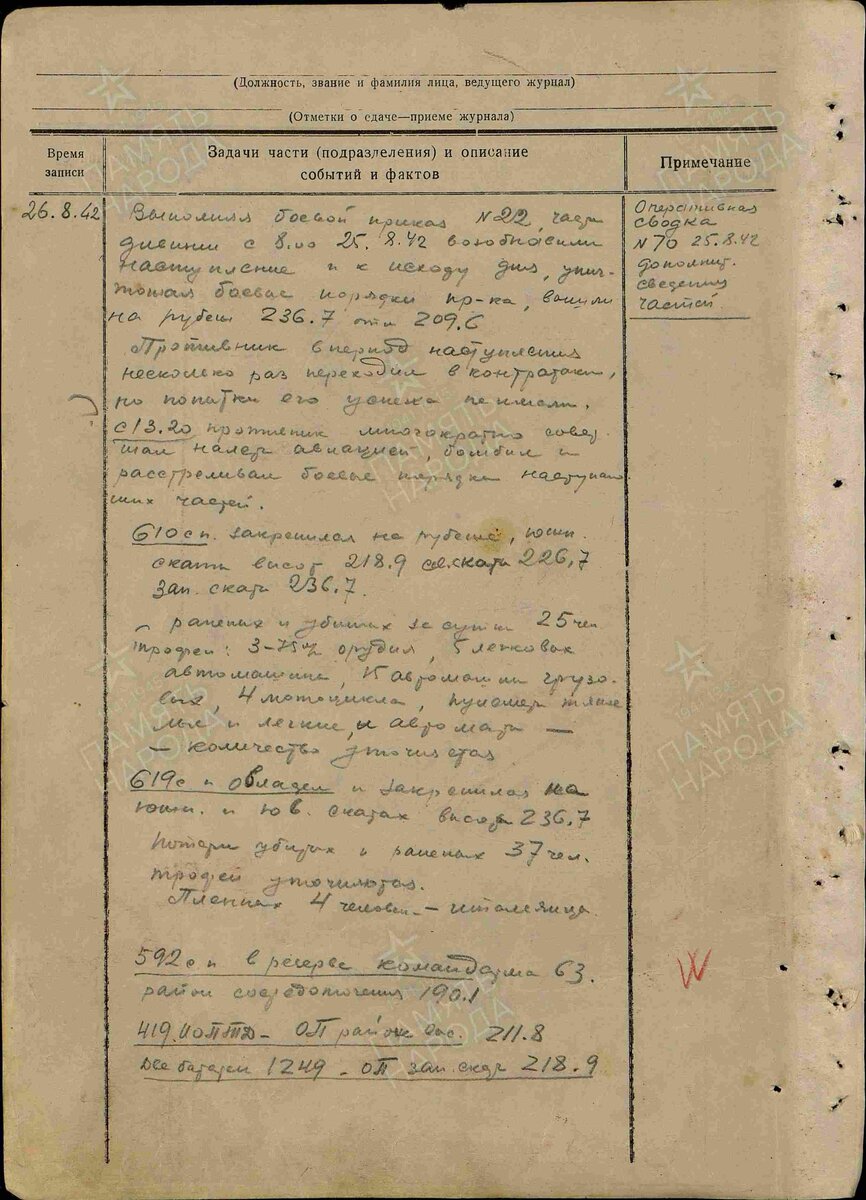 (Должность, звание и фамилия лица, ведущего журнал)
(Отметки о сдаче—приеме журнала)
Время записи
Задачи части (подразделения) и описание событий и фактов
Примечание
26.8.42
Выполняя боевой приказ №22, части
дивизии с 8.00 25.8.42 возобновили
наступление и к исходу дня, унич-
тожая боевые порядки пр-ка, вышли
на рубеж 236.7 отм 209.6
Противник в период наступления
несколько раз переходил в контратаки,
но попытки его успеха не имели.
с 13.20 противник многократно совер
шал налет авиацией, бомбил и
расстреливал боевые порядки наступаю
щих частей.
610 сп. закрепился на рубеже, южн.
скаты высот 218.9 св. скаты 226,7
зап. скаты 236.7.
раненых и убитых за сутки 25 чел
трофеи: 3-75 орудия, 5 легковых
автомашин, 15 автомашин грузо-
вых, 4 мотоцикла, пулеметы тяже
лые и легкие, и автоматы —
— количество уточняется
619 с п овладел и закрепился на
южн. и ю в. скатах высоты 236.7
Потери убитых и раненых 37 чел.
трофеи уточняются.
Пленных 4 человек — итальянца.
592 с п в резерве командарма 63.
район сосредоточения 190.1
419 ИОПТД — ОП район выс. 211.8
Две батареи 1249 — ОП зап. скаты 218.9
Оперативная
сводка
№70 25.8.42
дополнит.
сведения
частей
ПАМЯТЬ НАРОДА